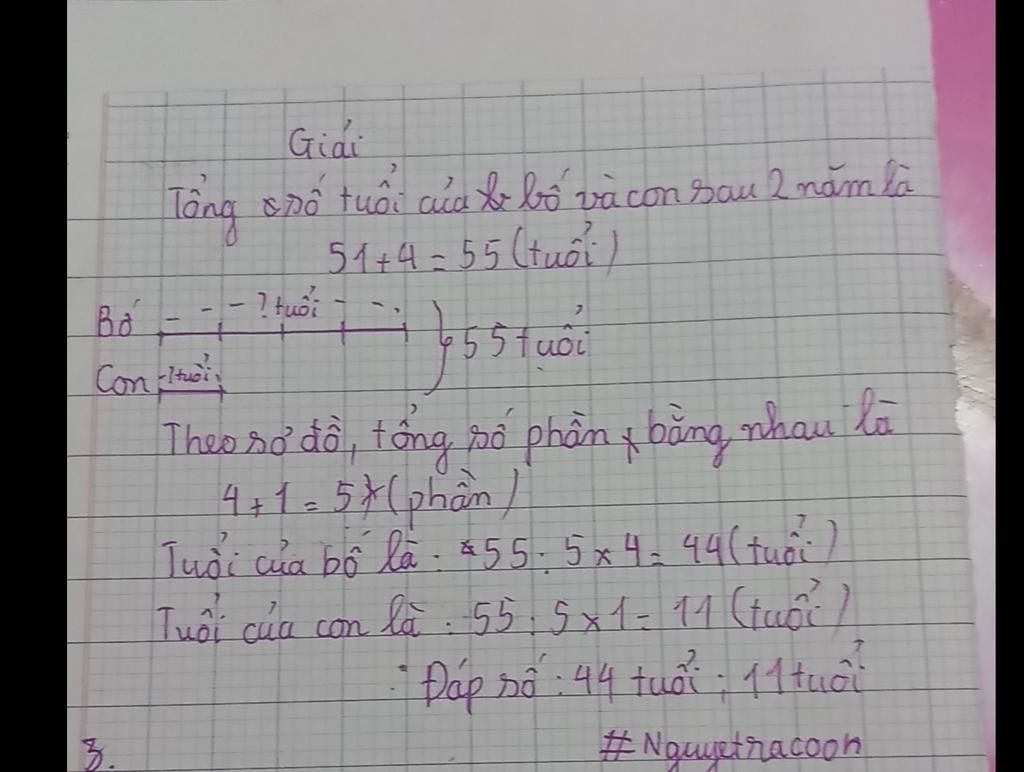 Giải
Tổng số tuổi của bố và con sau 2 năm là
51+4=55(tuổi)
Bố ? tuổi
55 tuổi
Con ? tuổi
Theo sơ đồ, tổng số phần bằng nhau là
4+1=5 (phần)
Tuổi của bố là: 55:5×4=44(tuổi)
Tuổi của con là: 55:5×1=11(tuổi)
Đáp số: 44 tuổi; 11 tuổi
3. #Nguyetracoon